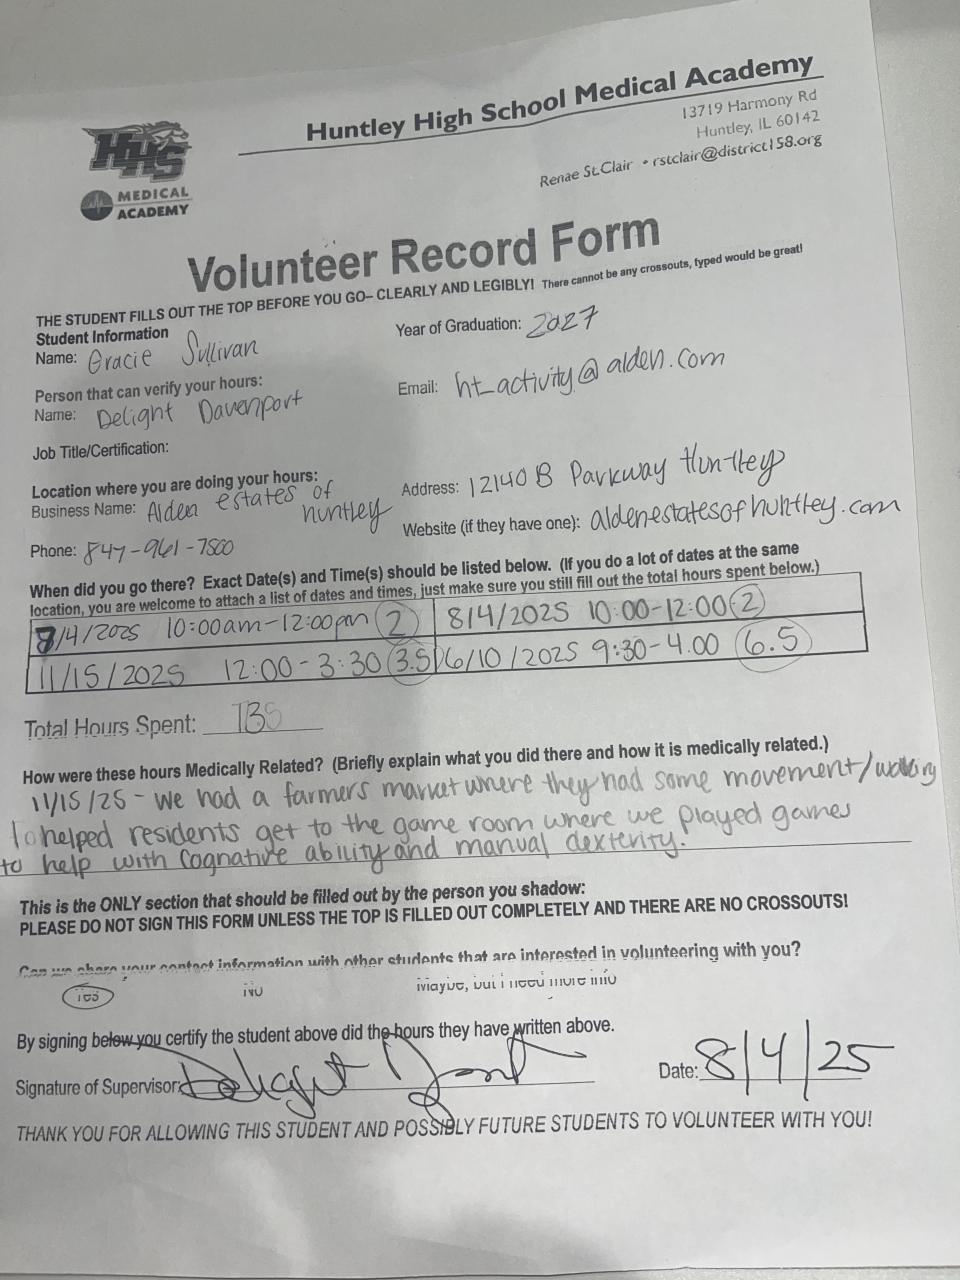 Huntley High School Medical Academy
13719 Harmony Rd
Huntley, IL 60142
Renae St.Clair • rstclair@district158.org
HHS
MEDICAL
ACADEMY
Volunteer Record Form
THE STUDENT FILLS OUT THE TOP BEFORE YOU GO– CLEARLY AND LEGIBLY! There cannot be any crossouts, typed would be great!
Student Information
Name: Gracie Sullivan
Year of Graduation: 2027
Person that can verify your hours:
Name: Delight Davenport
Email: ht_activity@alden.com
Job Title/Certification:
Location where you are doing your hours:
Business Name: Alden estates of huntley
Address: 12140 B Parkway Huntley
Phone: 847-961-7500
Website (if they have one): aldenestatesofhuntley.com
When did you go there? Exact Date(s) and Time(s) should be listed below. (If you do a lot of dates at the same
location, you are welcome to attach a list of dates and times, just make sure you still fill out the total hours spent below.)
/4/2025 10:00am-12:00pm 2 8/4/2025 10:00-12:00 2
11/15/2025 12:00-3:30 3.5 6/10/2025 9:30-4:00 6.5
Total Hours Spent:
How were these hours Medically Related? (Briefly explain what you did there and how it is medically related.)
11/15/25 - we had a farmers market where they had some movement/walking
helped residents get to the game room where we played games
to help with cognative ability and manual dexterity.
This is the ONLY section that should be filled out by the person you shadow:
PLEASE DO NOT SIGN THIS FORM UNLESS THE TOP IS FILLED OUT COMPLETELY AND THERE ARE NO CROSSOUTS!
Can we share your contact information with other students that are interested in volunteering with you?
Yes No Maybe, but I need more info
By signing below you certify the student above did the hours they have written above.
Signature of Supervisor: Delight Date: 8/4/25
THANK YOU FOR ALLOWING THIS STUDENT AND POSSIBLY FUTURE STUDENTS TO VOLUNTEER WITH YOU!